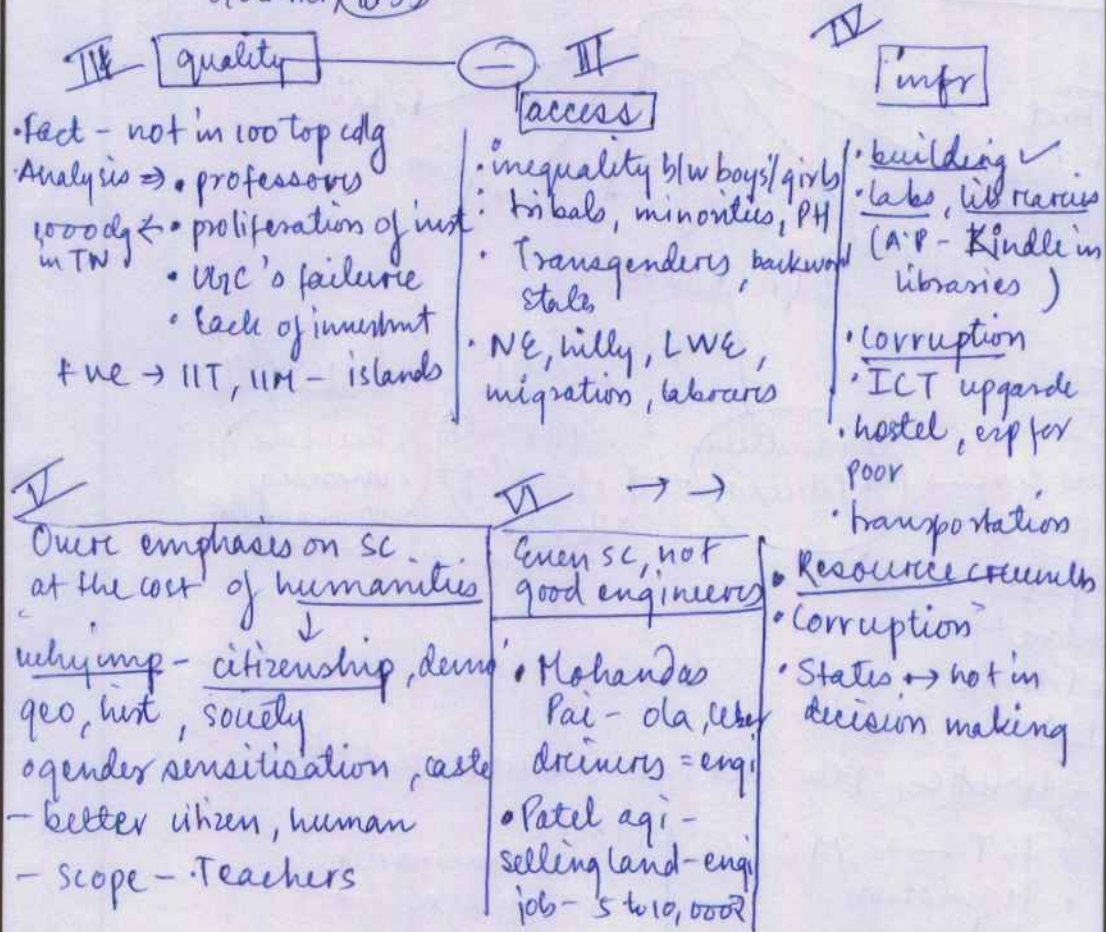 III quality
• Fact - not in 100 top cdlg
• Analysis ⇒ • professors
1,000 clg ← • proliferation of inst
in TN
• UGC's failure
• Lack of investmnt
+ve → IIT, IIM - islands
- III
access
• inequality b/w boys/girls
• tribals, minorities, PH
• Transgenders, backward
states
• NE, hilly, LWE,
migration, labourers
IV
infr
• building ✓
• labs, libraries
(A.P - Kindle in
libraries)
• Corruption
• ICT upgarde
• hostel, esp for
poor
• transportation
V
Over emphases on SC
at the cost of humanities
↓
why imp - citizenship, demo
geo, hist, society
gender sensitisation, caste
- better citizen, human
- scope - Teachers
VI → →
Even sc, not
good engineers
• Mohandas
Pai - ola, uber
drivers = engi
• Patel agi -
selling land - engi
job - 5 to 10,000₹
• Resource crunch
• Corruption
• States ↔ not in
decision making